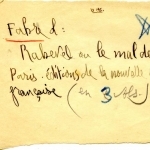 Fabre L:
Rabevel ou le mal de
Paris. Editions de la nouvelle
française (en 3 vols.)